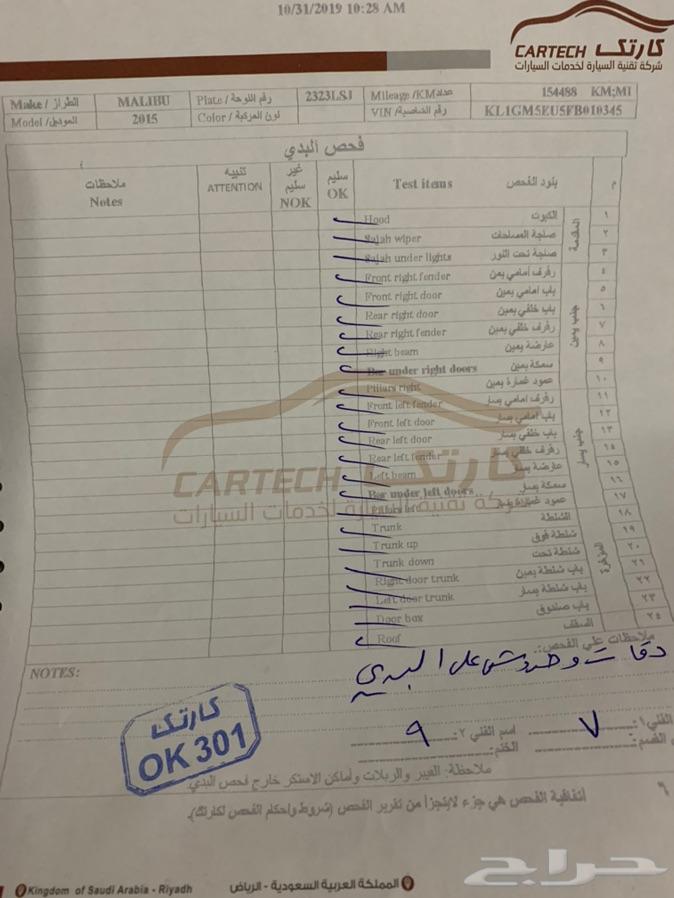 10/31/2019 10:28 AM
CARTECH كارتك
شركة تقنية السيارة لخدمات السيارات
Make / الطراز MALIBU Plate / رقم اللوحة 2323LSJ Mileage /KM عداد 154488 KM;MI
Model / الموديل 2015 Color / لون المركبة VIN / رقم الخاصية KL1GM5EU5FB010345
فحص البدي
ملاحظات Notes تنبيه ATTENTION غير سليم NOK سليم OK Test items بنود الفحص م
المقدمة
Hood الكبوت ١
Sajah wiper صاجة المساحات ٢
Sajah under lights صاجة تحت النور ٣
جنب يمين
Front right fender رفرف أمامي يمين ٤
Front right door باب امامي يمين ٥
Rear right door باب خلفي يمين ٦
Rear right fender رفرف خلفي يمين ٧
Right beam عارضة يمين ٨
Bar under right doors سمكة يمين ٩
Pillars right عمود غمارة يمين ١٠
جنب يسار
Front left fender رفرف امامي يسار ١١
Front left door باب أمامي يسار ١٢
Rear left door باب خلفي يسار ١٣
Rear left fender رفرف خلفي يسار ١٤
Left beam عارضة يسار ١٥
Bar under left doors سمكة يسار ١٦
Pillars left عمود غمارة يسار ١٧
المؤخرة
Trunk الشنطة ١٨
Trunk up شنطة فوق ١٩
Trunk down شنطة تحت ٢٠
Right door trunk باب شنطة يمين ٢١
Left door trunk باب شنطة يسار ٢٢
Door box باب صندوق ٢٣
Roof السقف ٢٤
CARTECH كارتك
شركة تقنية السيارة لخدمات السيارات
NOTES: ملاحظات على الفحص:
دقات وخدوش على البدي
كارتك
OK 301
الفني ١: ٧ اسم الفني ٢: ٩
القسم: الختم:
ملاحظة: الغيير والربلات وأماكن الاستكر خارج فحص البدي
٦ اتفاقية الفحص هي جزء لايتجزأ من تقرير الفحص (شروط واحكام الفحص لكارتك).
Kingdom of Saudi Arabia - Riyadh المملكة العربية السعودية - الرياض
حراج